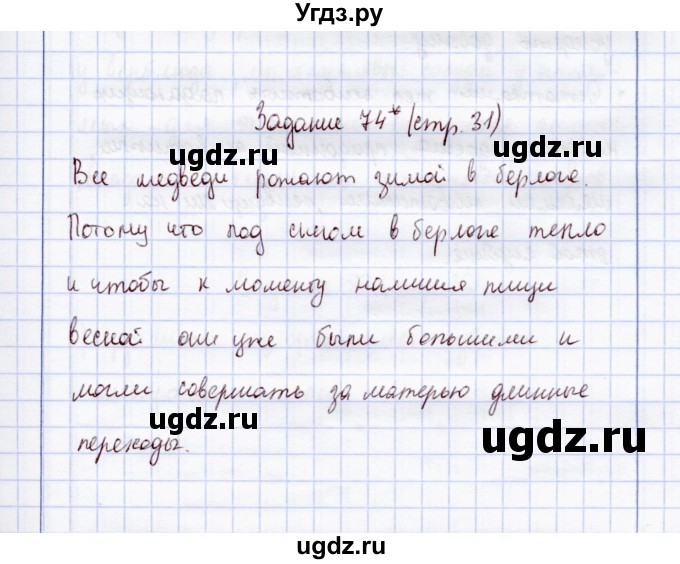 Угдз.ру
Задание 74* (стр. 31)
ugdz.ru
ugdz.ru
Все медведи рожают зимой в берлоге.
Потому что под снегом в берлоге тепло
ugdz.ru
ugdz.ru
и чтобы к моменту наличия пищи
весной они уже были большими и
могли совершать за матерью длинные
ugdz.ru
ugdz.ru
переходы.
ugdz.ru